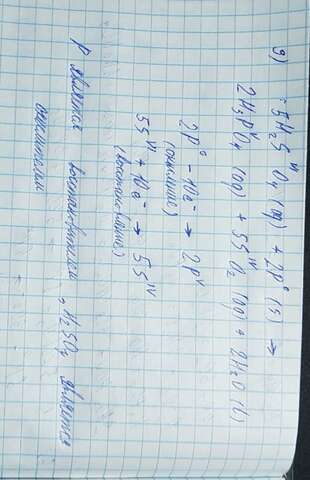 9) 5H₂S^VI O₄ (aq) + 2P⁰ (s) →
2H₃P^V O₄ (aq) + 5S^IV O₂ (aq) + 2H₂O (l)
2P⁰ - 10e⁻ → 2P^V
(окисление)
5S^VI + 10e⁻ → 5S^IV
(восстановление)
P является восстановителем, H₂SO₄ является
окислителем